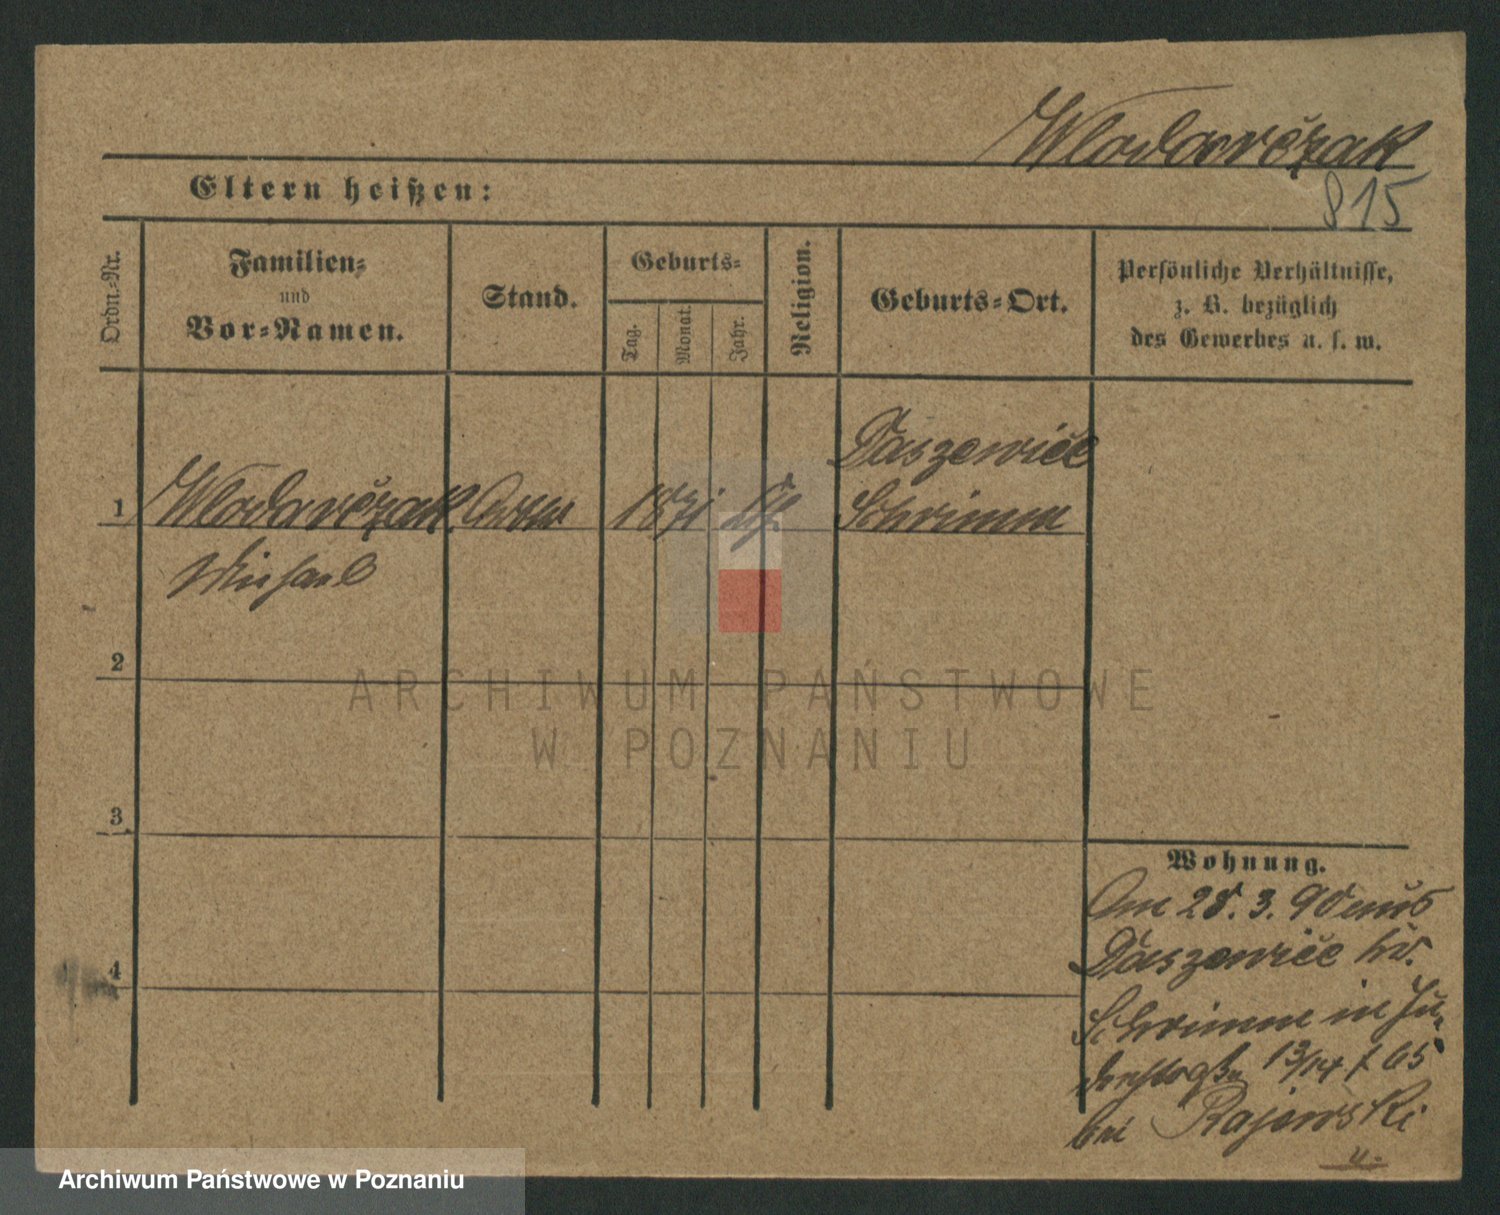 Wlodarczak
815
Eltern heißen:
Ordn.-Nr.
Familien-
und
Vor-Namen.
Stand.
Geburts-
Tag.
Monat.
Jahr.
Religion.
Geburts-Ort.
Persönliche Verhältnisse,
z. B. bezüglich
des Gewerbes u. s. w.
Daszewice
1
Wlodarczak
1871
Schrimm
Michael
2
ARCHIWUM PAŃSTWOWE
W POZNANIU
3
Wohnung.
Am 28. 3. 90 aus
Daszewice Kr.
4
Schrimm in Ju-
13/14 f 65
bei Rajewski
Archiwum Państwowe w Poznaniu